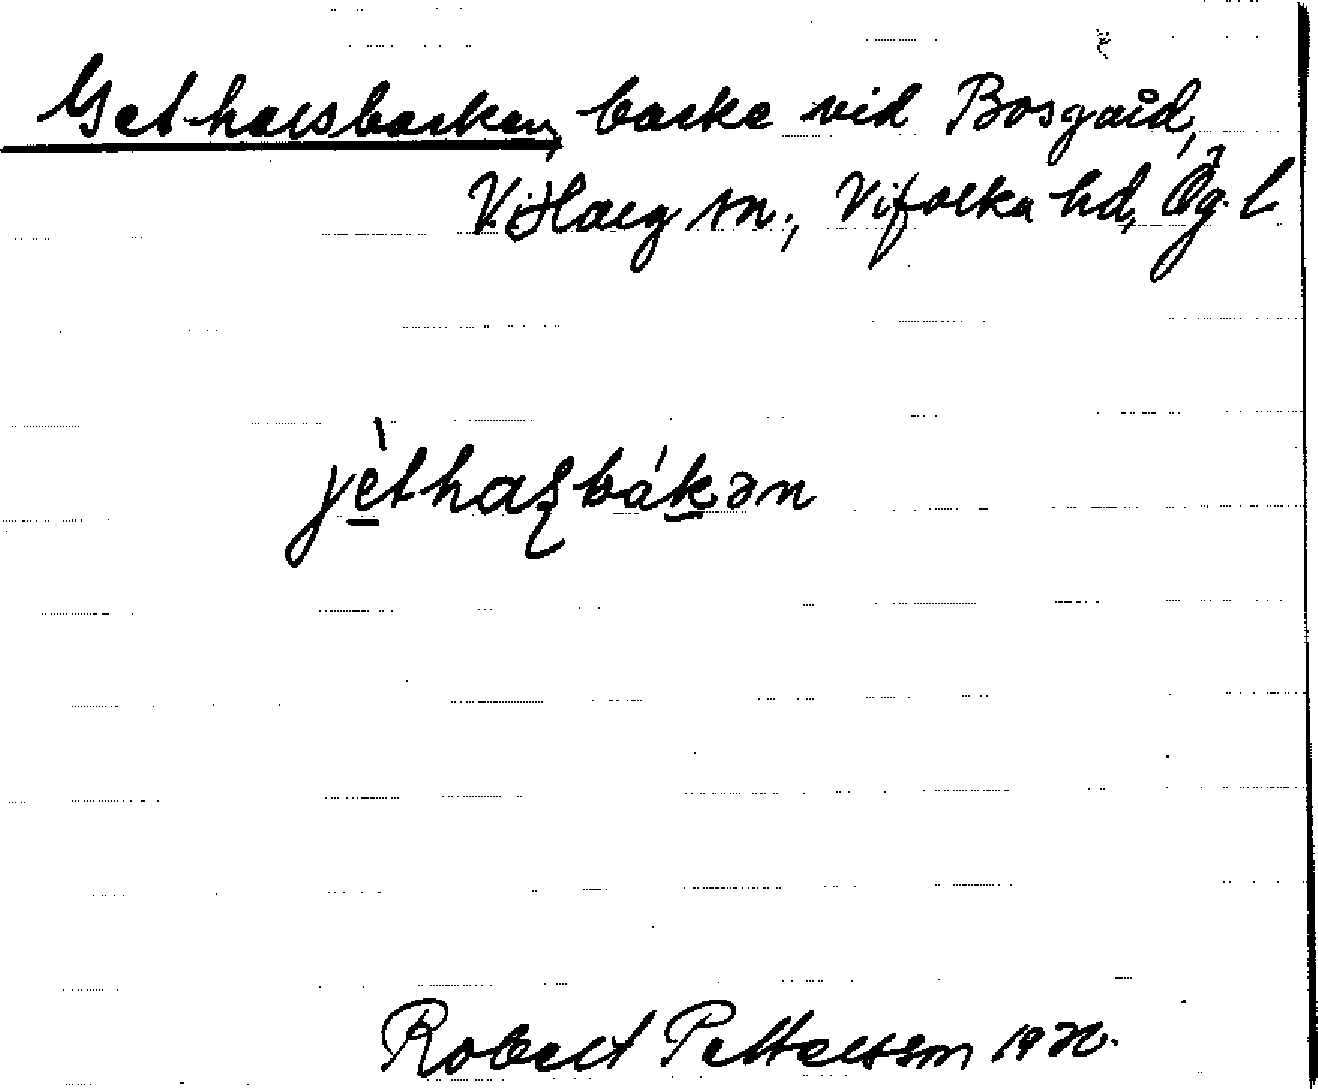 Gethalsbacken, backe vid Bosgård,
V. Harg sn., Vifolka hd, Ög. l
jèthalsbákən
Robert Pettersson